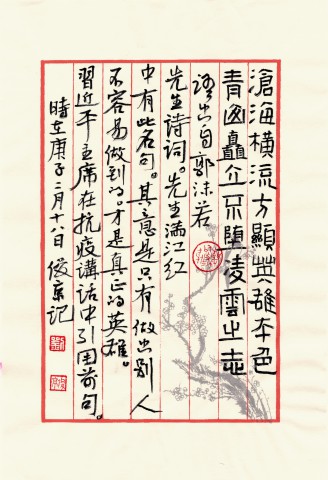 滄海橫流方顯英雄本色
青山矗立不墮凌雲之志
語出自郭沫若
先生诗词。先生滿江红
中有此名句。其意是只有做出别人
不容易做到的。才是真正的英雄。
習近平主席在抗疫講话中引用前句。
時在庚子二月十八日俊京记